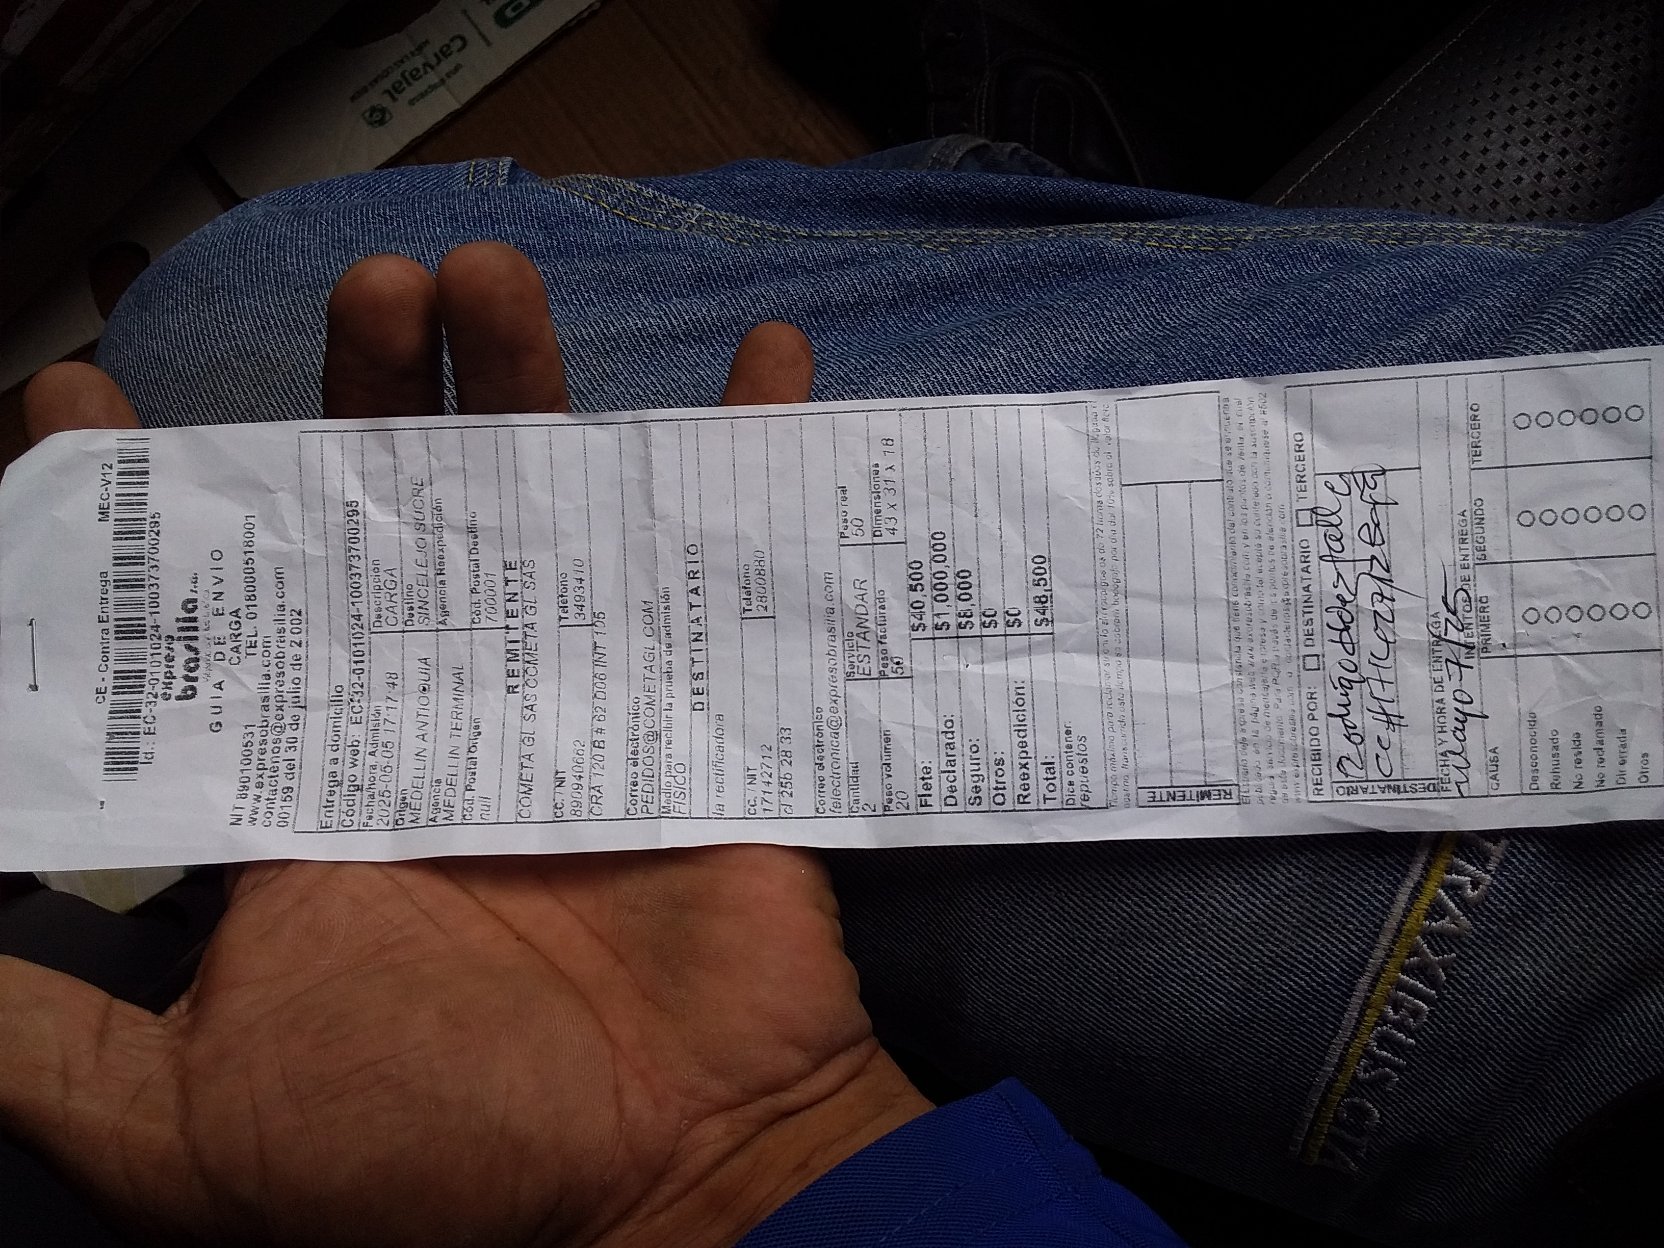 CE - Contra Entrega MEC-V12
Id.: EC-32-0101024-100373700295
expreso
brasilia s.a.
GUIA DE ENVIO
CARGA
NIT 890100531 TEL. 018000518001
www.expresobrasilia.com
contactenos@expresobrasilia.com
00159 del 30 de julio de 2002
Entrega a domicilio
Código web: EC-32-0101024-100373700295
Fecha/hora Admisión Descripción
2025-05-05 17:17:48 CARGA
Origen Destino
MEDELLIN ANTIOQUIA SINCELEJO SUCRE
Agencia Agencia Reexpedición
MEDELLIN TERMINAL
Cód. Postal Origen Cód. Postal Destino
null 700001
REMITENTE
COMETA GL SAS COMETA GL SAS
CC. / NIT Teléfono
890940662 3493410
CRA 120 B # 62 D06 INT 105
Correo electrónico
PEDIDOS@COMETAGL.COM
Medio para recibir la prueba de admisión
FISICO
DESTINATARIO
la rectificadora
CC. / NIT Teléfono
17142712 2800880
cl 25b 28 33
Correo electrónico
felectronica@expresobrasilia.com
Cantidad Servicio Peso real
2 ESTANDAR 50
Peso volumen Peso facturado Dimensiones
20 50 43 x 31 x 18
Flete: $40,500
Declarado: $1,000,000
Seguro: $8,000
Otros: $0
Reexpedición: $0
Total: $48,500
Dice contener:
repuestos
REMITENTE
RECIBIDO POR: DESTINATARIO TERCERO
DESTINATARIO
FECHA Y HORA DE ENTREGA
mayo 7/25
INTENTOS DE ENTREGA
CAUSA PRIMERO SEGUNDO TERCERO
Desconocido
Rehusado
No reside
No reclamado
Dir errada
Otros
una empresa
Carvajal
TRAXIBUS